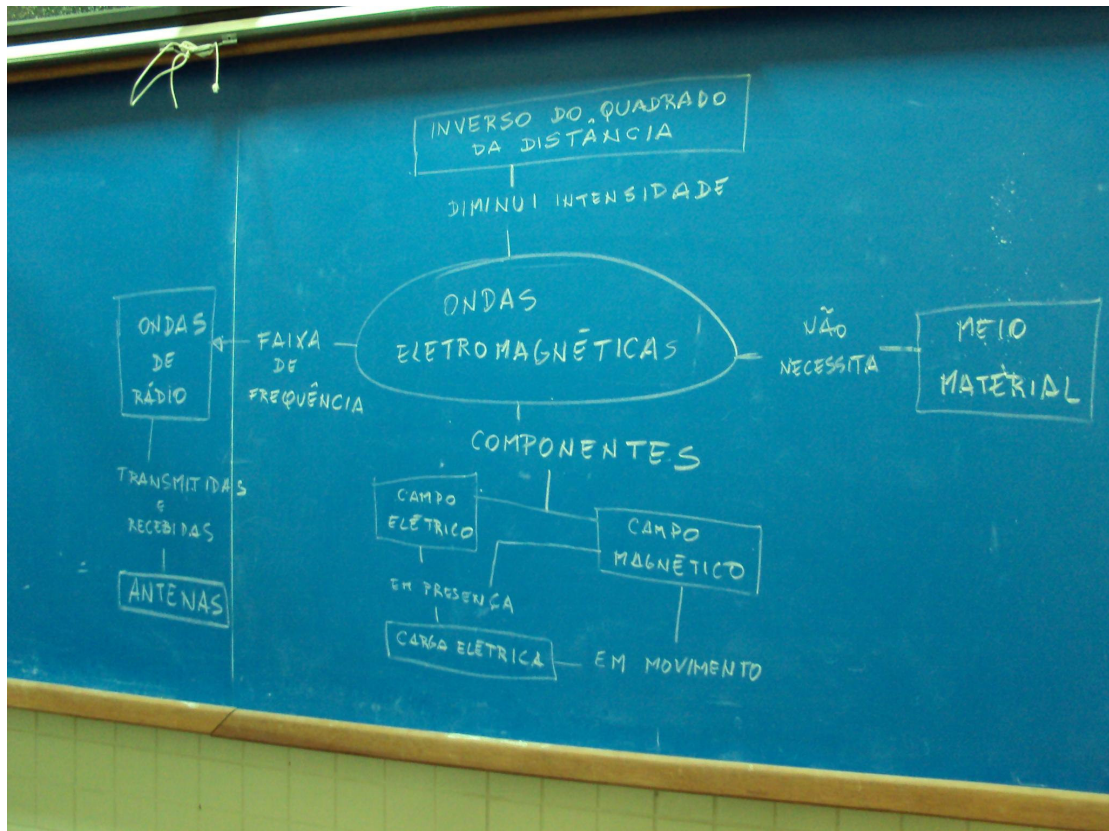 INVERSO DO QUADRADO
DA DISTÂNCIA
DIMINUI INTENSIDADE
ONDAS
ELETROMAGNÉTICAS
FAIXA
DE
FREQUÊNCIA
ONDAS
DE
RÁDIO
TRANSMITIDAS
E
RECEBIDAS
ANTENAS
NÃO
NECESSITA
MEIO
MATERIAL
COMPONENTES
CAMPO
ELÉTRICO
CAMPO
MAGNÉTICO
EM PRESENÇA
CARGA ELÉTRICA
EM MOVIMENTO